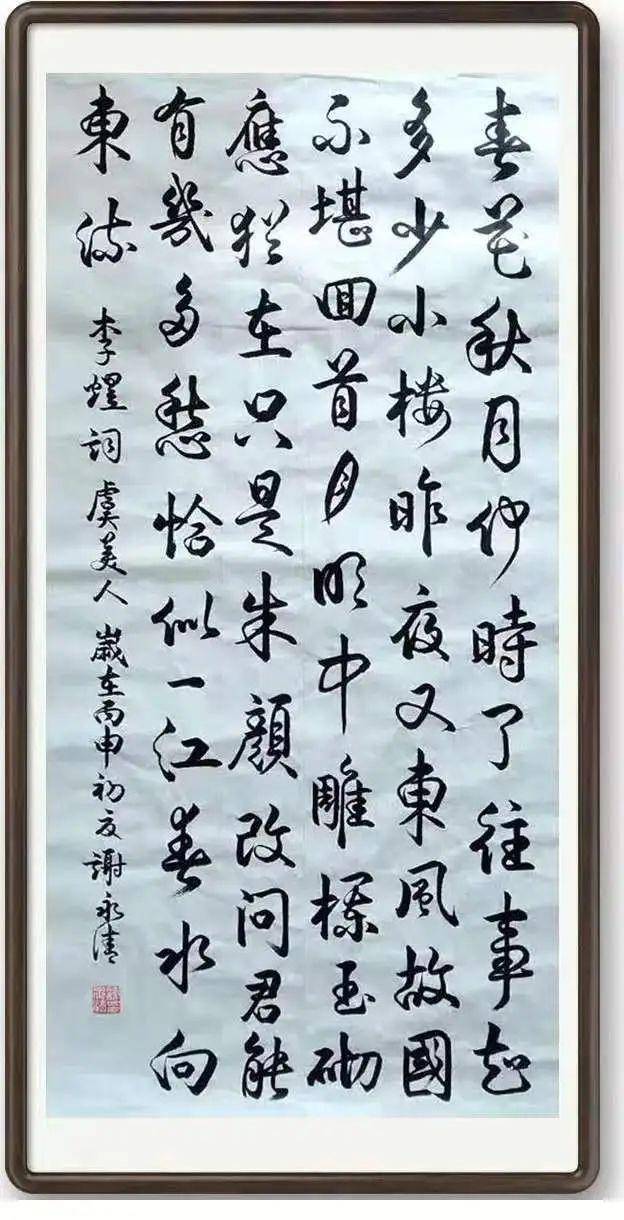 春花秋月何時了往事知
多少小樓昨夜又東風故國
不堪囬首月明中雕欄玉砌
應猶在只是朱顏改問君能
有幾多愁恰似一江春水向
東流 李煜詞 虞美人 歲在丙申初夏謝永清